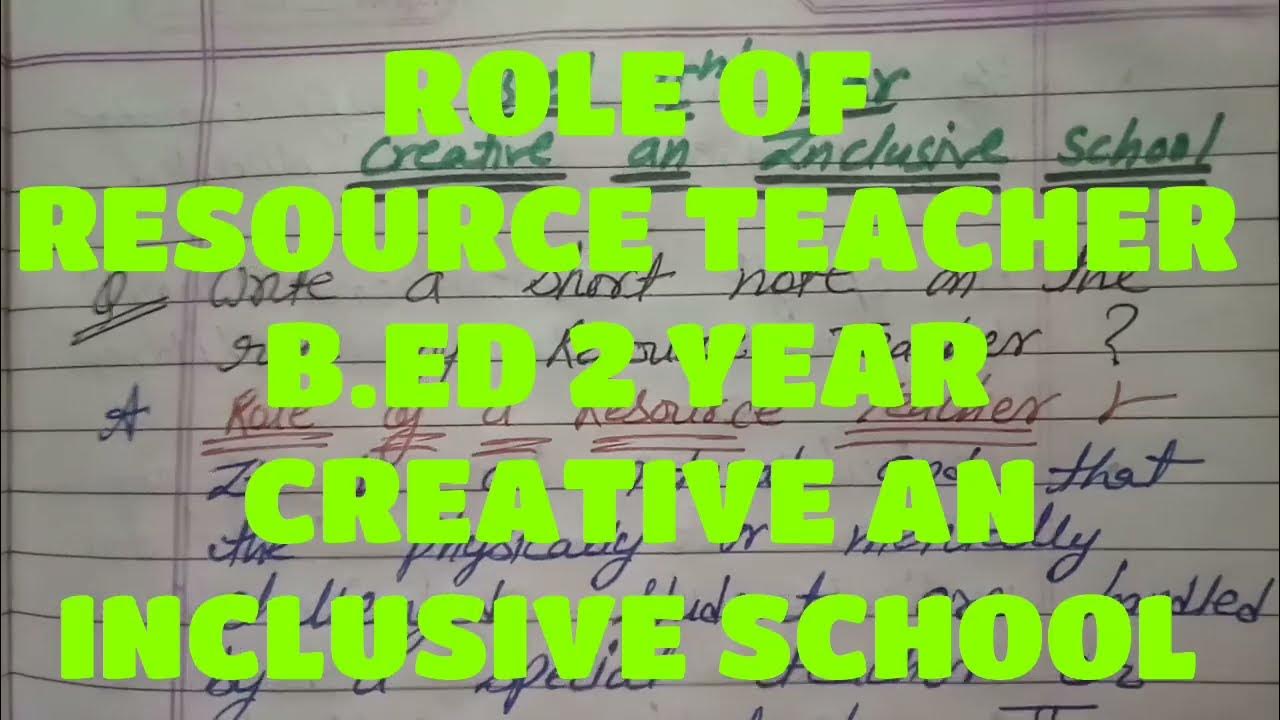 ROLE OF
RESOURCE TEACHER
B.ED 2 YEAR
CREATIVE AN
INCLUSIVE SCHOOL
Creative an Inclusive School
Q Write a short note on the
Teacher ?
A Role of a Resource Teacher
that
the physically or mentally
students are handled
by a special teacher or